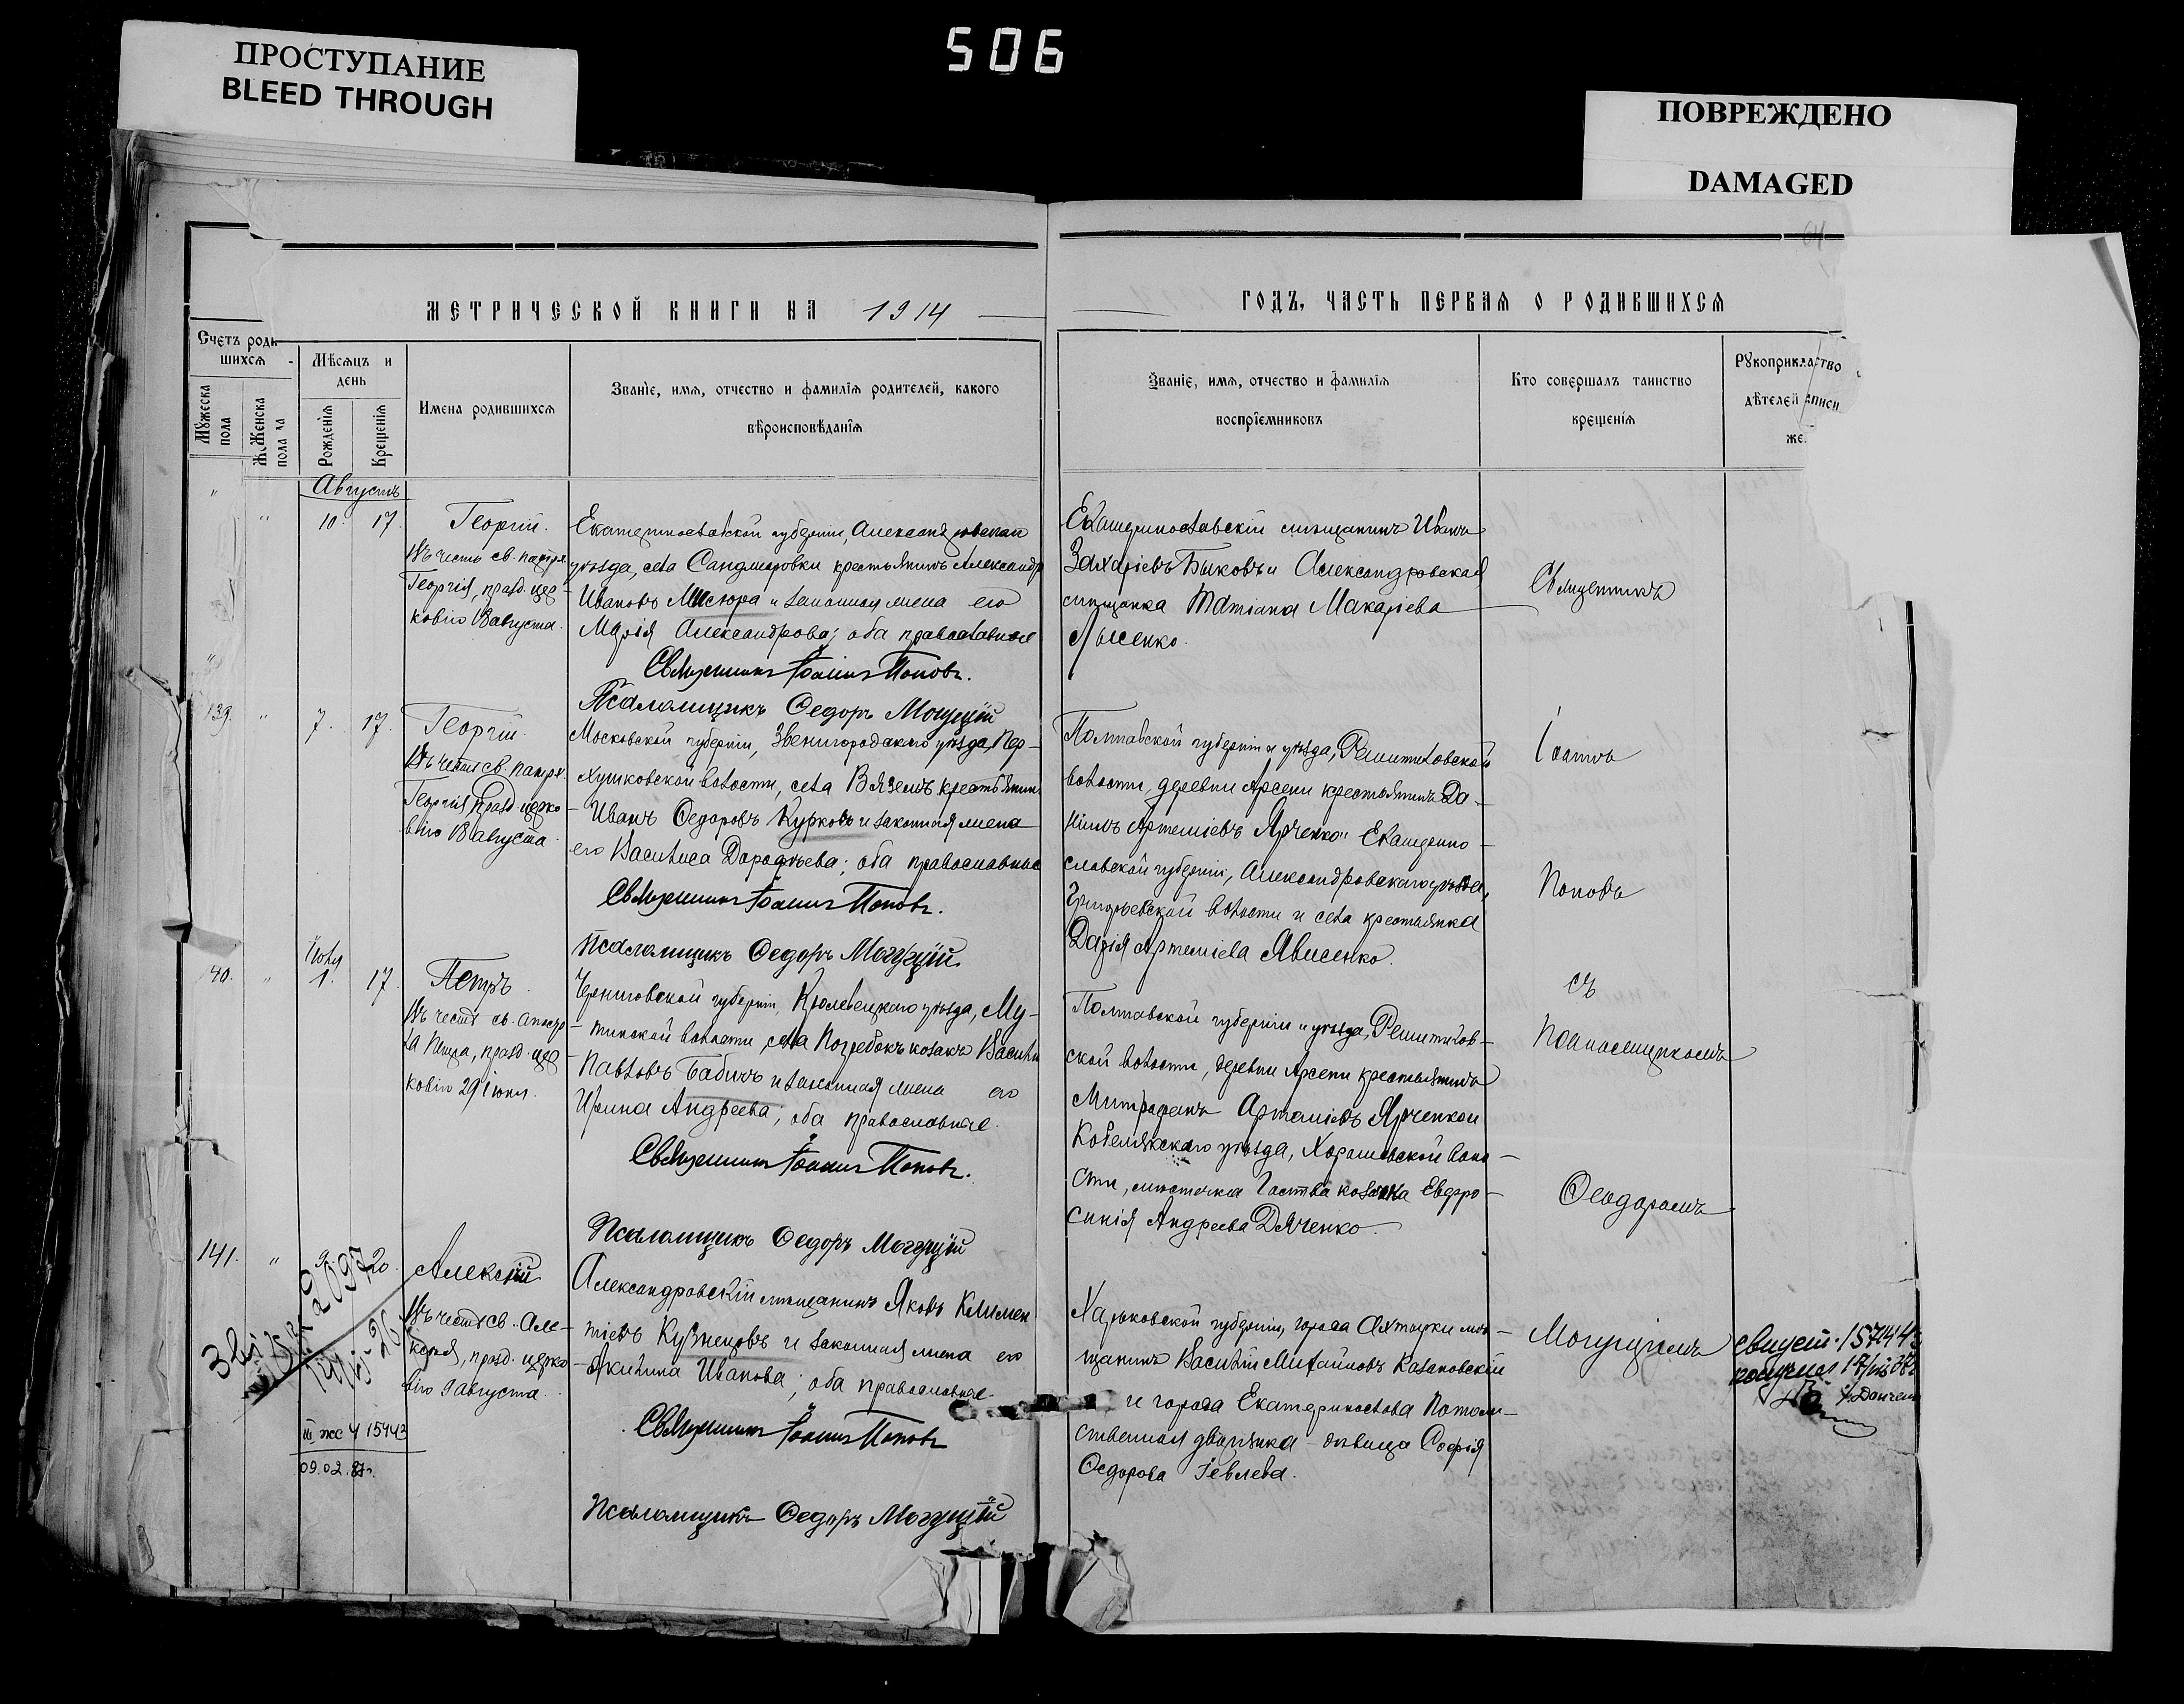 506
ПРОСТУПАНИЕ
BLEED THROUGH
ПОВРЕЖДЕНО
DAMAGED
МЕТРИЧЕСКОЙ КНИГИ НА 1914
ГОДЪ, ЧАСТЬ ПЕРВАЯ О РОДИВШИХСЯ
Счетъ роди
шихся
Мужеска
пола
Женска
пола
Мѣсяцъ и
день
Рожденія
Крещенія
Имена родившихся
Званіе, имя, отчество и фамилія родителей, какого
вѣроисповѣданія
Званіе, имя, отчество и фамилія
воспріемниковъ
Кто совершалъ таинство
крещенія
Рукоприкладство
дѣтелей записи
же
Августъ
10. 17.
Георгій.
Въ честь св. патрі
Георгія, празд. цер-
ковію 18 августа.
Екатеринославской губерніи, Александровскаго
уѣзда, села Сандыровки крестьянинъ Александръ
Ивановъ Мисюра и законная жена его
Марія Александрова; оба православные
Священникъ Іоаннъ Поповъ.
Псаломщикъ Ѳедоръ Могущій
Екатеринославскій мѣщанинъ Иванъ
Захаріевъ Быковъ и Александровская
мѣщанка Татіана Макаріева
Лысенко.
Священникъ
139. " 7. 17.
Георгій.
Въ честь св. патрі.
Георгія празд. церко
вію 18 августа.
Московской губерніи, Звенигородскаго уѣзда, Пер-
хушковской волости, села Вяземъ крестьянинъ
Иванъ Ѳедоровъ Курковъ и законная жена
его Василиса Дороѳѣева; оба православные
Священникъ Іоаннъ Поповъ.
Псаломщикъ Ѳедоръ Могущій
Полтавской губерніи и уѣзда, Решитиловской
волости, деревни Арсени крестьянинъ Да-
ніилъ Артеміевъ Ярченко и Екатерино-
славской губерніи, Александровскаго уѣзда,
Григорьевской волости и села крестьянка
Дарія Артеміева Явисенко.
Іоаннъ
Поповъ
140. " Іюля 1. 17.
Петръ.
Въ честь св. апосто
ла Петра, празд. цер
ковію 29 іюня.
Черниговской губерніи, Кролевецкаго уѣзда, Му-
тинской волости, села Погребокъ козакъ Василій
Павловъ Бабичъ и законная жена его
Ирина Андреева; оба православные.
Священникъ Іоаннъ Поповъ.
Псаломщикъ Ѳедоръ Могущій
Полтавской губерніи и уѣзда, Решитилов-
ской волости, деревни Арсени крестьянинъ
Митрофанъ Артеміевъ Ярченко и
Кобелякскаго уѣзда, Хорошевской воло-
сти, мѣстечка козачка Евфро-
синія Андреева Дяченко.
съ
Псаломщикомъ
Ѳеодоромъ
141. " 9. 20.
Алексій.
Въ честь св. Але-
ксія, празд. церко
вію 9 августа.
Александровскій мѣщанинъ Яковъ Климен
тіевъ Кузнецовъ и законная жена его
Акилина Иванова; оба православные.
Священникъ Іоаннъ Поповъ
Псаломщикъ Ѳедоръ Могущій
Харьковской губерніи, города Ахтырки мѣ-
щанинъ Василій Михайловъ Казановскій
и города Екатеринослава Потом-
ственная дворянка - дѣвица Софія
Ѳедорова Іевлева.
Могущимъ
III жс ч 15443
09.02.87г.